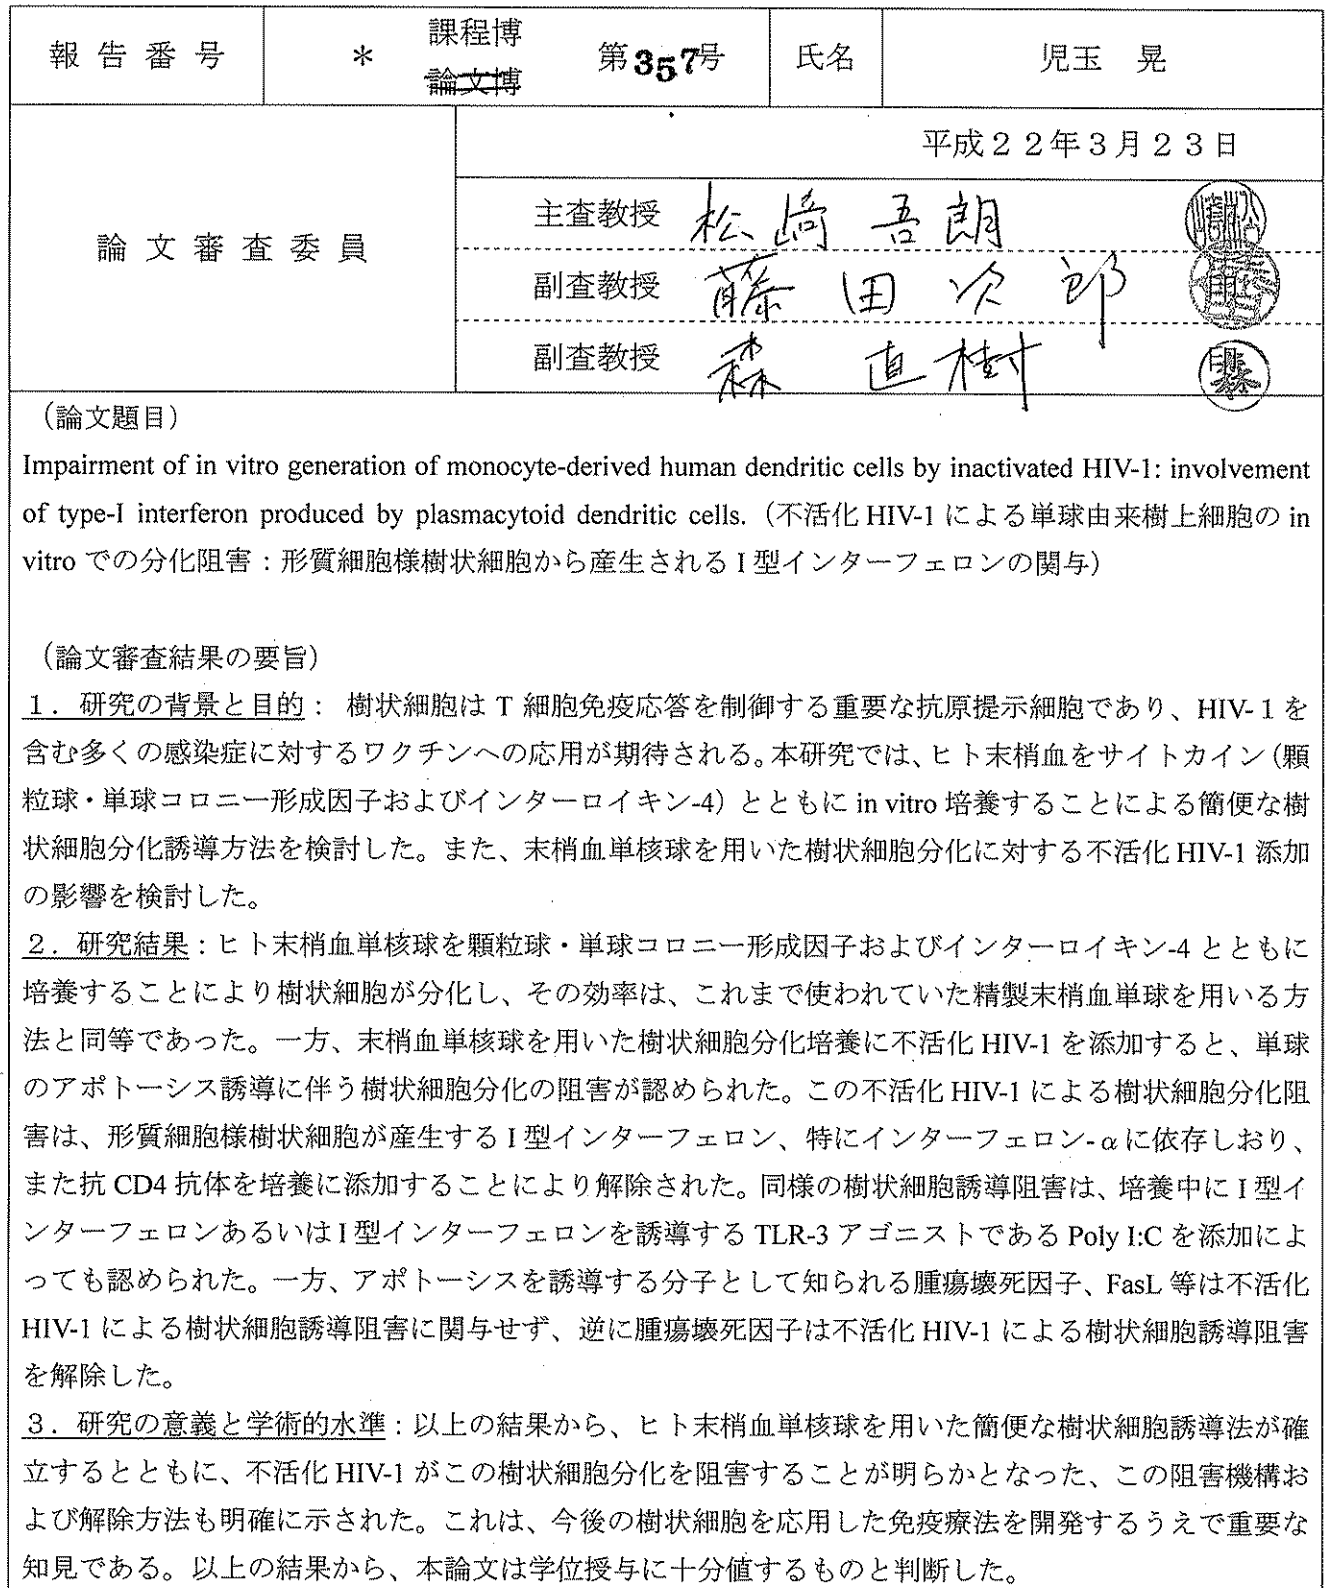 報 告 番 号
＊
課程博
論文博
第357号
氏名
児玉 晃
論 文 審 査 委 員
平成２２年３月２３日
主査教授 松﨑 吾朗
副査教授 藤田 次郎
副査教授 森 直樹
（論文題目）
Impairment of in vitro generation of monocyte-derived human dendritic cells by inactivated HIV-1: involvement
of type-I interferon produced by plasmacytoid dendritic cells.（不活化 HIV-1 による単球由来樹上細胞の in
vitro での分化阻害：形質細胞様樹状細胞から産生される I 型インターフェロンの関与）
（論文審査結果の要旨）
１．研究の背景と目的： 樹状細胞は T 細胞免疫応答を制御する重要な抗原提示細胞であり、HIV-１を
含む多くの感染症に対するワクチンへの応用が期待される。本研究では、ヒト末梢血をサイトカイン（顆
粒球・単球コロニー形成因子およびインターロイキン-4）とともに in vitro 培養することによる簡便な樹
状細胞分化誘導方法を検討した。また、末梢血単核球を用いた樹状細胞分化に対する不活化 HIV-1 添加
の影響を検討した。
２．研究結果：ヒト末梢血単核球を顆粒球・単球コロニー形成因子およびインターロイキン-4 とともに
培養することにより樹状細胞が分化し、その効率は、これまで使われていた精製末梢血単球を用いる方
法と同等であった。一方、末梢血単核球を用いた樹状細胞分化培養に不活化 HIV-1 を添加すると、単球
のアポトーシス誘導に伴う樹状細胞分化の阻害が認められた。この不活化 HIV-1 による樹状細胞分化阻
害は、形質細胞様樹状細胞が産生する I 型インターフェロン、特にインターフェロン-αに依存しおり、
また抗 CD4 抗体を培養に添加することにより解除された。同様の樹状細胞誘導阻害は、培養中に I 型イ
ンターフェロンあるいは I 型インターフェロンを誘導する TLR-3 アゴニストである Poly I:C を添加によ
っても認められた。一方、アポトーシスを誘導する分子として知られる腫瘍壊死因子、FasL 等は不活化
HIV-1 による樹状細胞誘導阻害に関与せず、逆に腫瘍壊死因子は不活化 HIV-1 による樹状細胞誘導阻害
を解除した。
３．研究の意義と学術的水準：以上の結果から、ヒト末梢血単核球を用いた簡便な樹状細胞誘導法が確
立するとともに、不活化 HIV-1 がこの樹状細胞分化を阻害することが明らかとなった、この阻害機構お
よび解除方法も明確に示された。これは、今後の樹状細胞を応用した免疫療法を開発するうえで重要な
知見である。以上の結果から、本論文は学位授与に十分値するものと判断した。